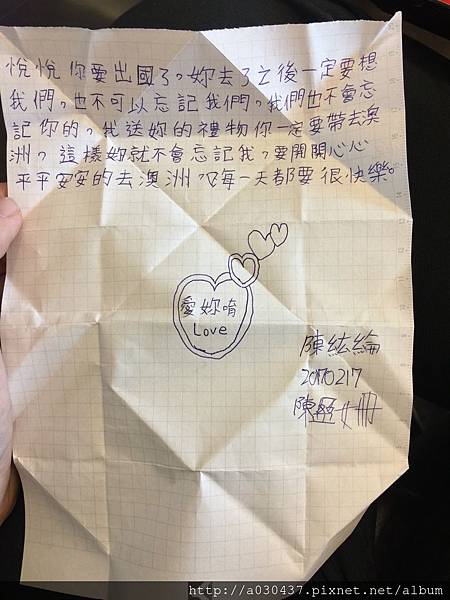 悅悅你愛出國了。妳去了之後一定要想
我們。也不可以忘記我們。我們也不會忘
記你的。我送妳的禮物你一定要帶去澳
洲。這樣妳就不會忘記我。要開開心心
平平安安的去澳洲。每一天都要很快樂。
愛妳唷
Love
陳紘綸
20170217
http://a030437.pixnet.net/album